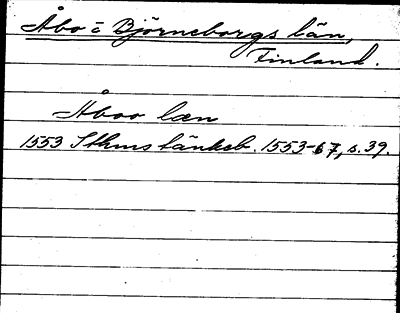 Åbo = Björneborgs län,
Finland.
Åboo læn
1553 Sthms tänkeb. 1553-67, s. 39.